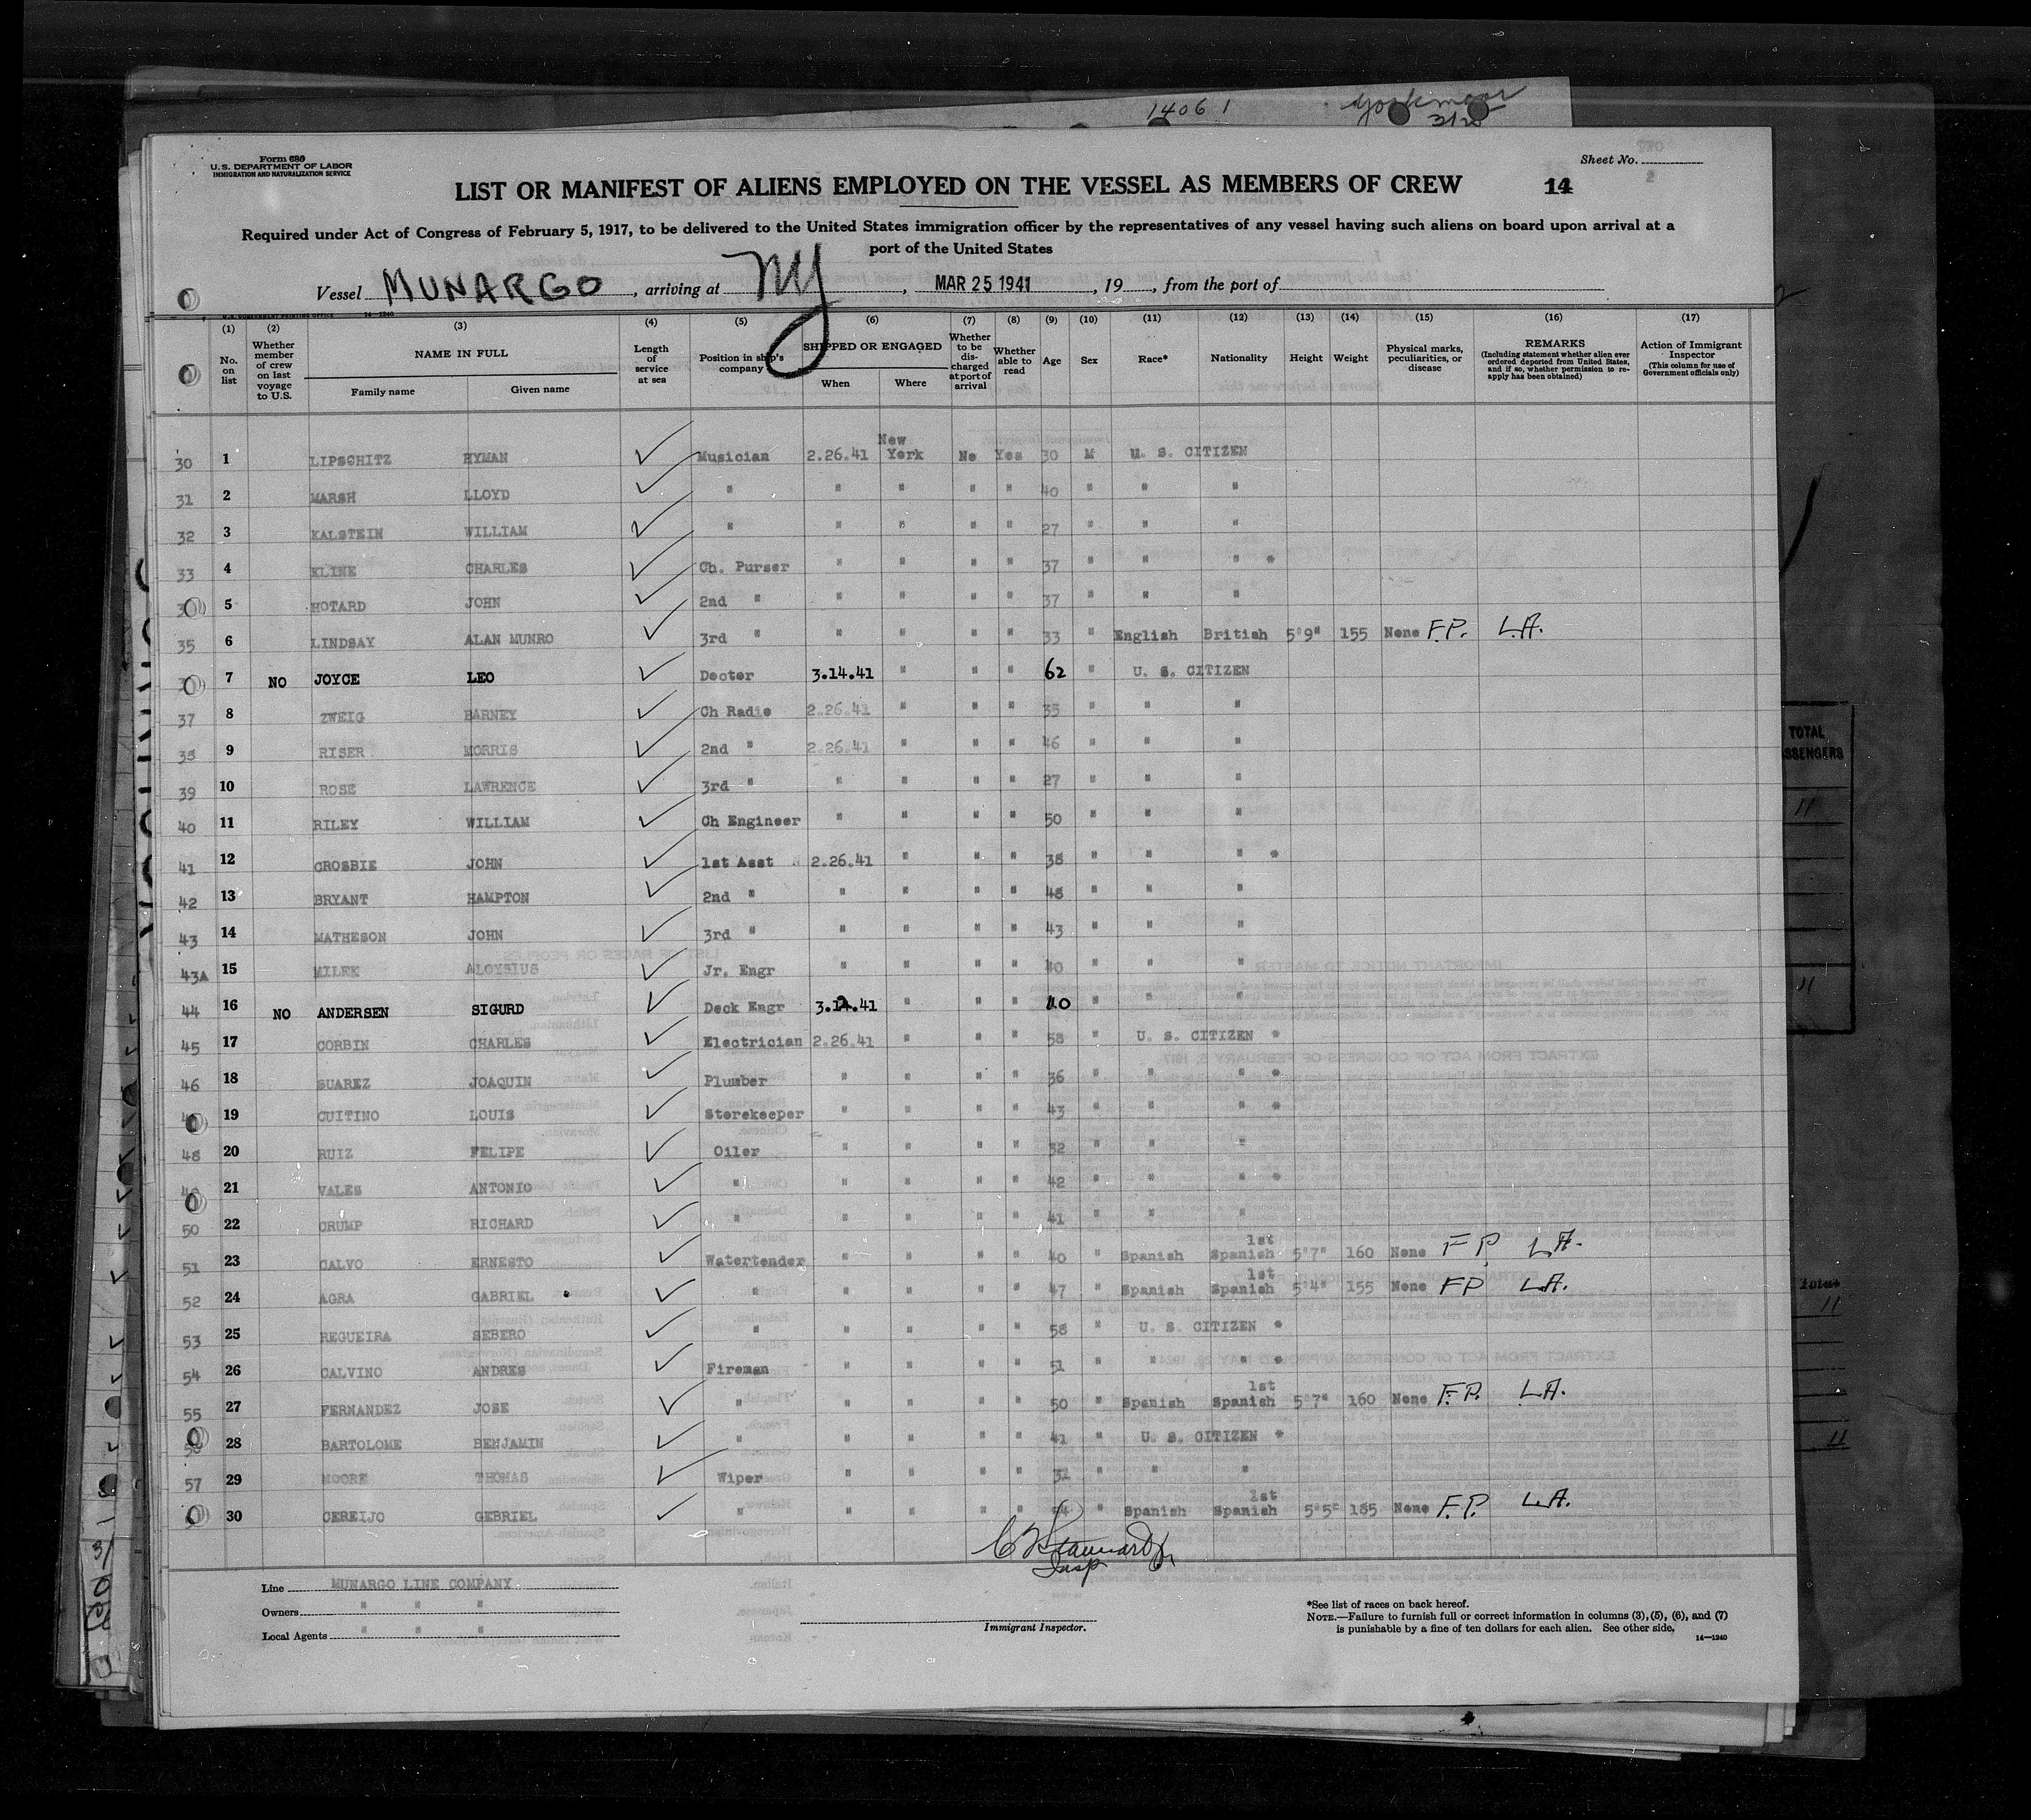 14061
Form 680
U. S. DEPARTMENT OF LABOR
IMMIGRATION AND NATURALIZATION SERVICE
Sheet No.
TWO
2
LIST OR MANIFEST OF ALIENS EMPLOYED ON THE VESSEL AS MEMBERS OF CREW 14
Required under Act of Congress of February 5, 1917, to be delivered to the United States immigration officer by the representatives of any vessel having such aliens on board upon arrival at a
port of the United States
Vessel MUNARGO, arriving at NY, MAR 25 1941, 19 , from the port of
(1) (2) (3) (4) (5) (6) (7) (8) (9) (10) (11) (12) (13) (14) (15) (16) (17)
No. on list
Whether member of crew on last voyage to U.S.
NAME IN FULL
Family name Given name
Length of service at sea
Position in ship's company
SHIPPED OR ENGAGED
When Where
Whether to be discharged at port of arrival
Whether able to read
Age
Sex
Race*
Nationality
Height
Weight
Physical marks, peculiarities, or disease
REMARKS
(Including statement whether alien ever ordered deported from United States, and if so, whether permission to reapply has been obtained)
Action of Immigrant Inspector
(This column for use of Government officials only)
30 1 LIPSCHITZ HYMAN ✓ Musician 2.26.41 New York No Yes 30 M U. S. CITIZEN
31 2 MARSH LLOYD ✓ " " " " " 40 " " "
32 3 KALSTEIN WILLIAM ✓ " " " " " 27 " " "
33 4 KLINE CHARLES ✓ Ch. Purser " " " " 37 " " " *
5 HOTARD JOHN ✓ 2nd " " " " " 37 " " "
35 6 LINDSAY ALAN MUNRO ✓ 3rd " " " " " 33 " English British 5'9" 155 None F.P. L.A.
7 NO JOYCE LEO ✓ Doctor 3.14.41 " " " 62 " U. S. CITIZEN
37 8 ZWEIG BARNEY ✓ Ch Radio 2.26.41 " " " 35 " " "
38 9 RISER MORRIS ✓ 2nd " 2.26.41 " " " 46 " " "
39 10 ROSE LAWRENCE ✓ 3rd " " " " " 27 " " "
40 11 RILEY WILLIAM ✓ Ch Engineer " " " " 50 " " "
41 12 CROSBIE JOHN ✓ 1st Asst 2.26.41 " " " 38 " " " *
42 13 BRYANT HAMPTON ✓ 2nd " " " " " 48 " " "
43 14 MATHESON JOHN ✓ 3rd " " " " " 43 " " "
43A 15 MILEK ALOYSIUS ✓ Jr. Engr " " " " 40 " " "
44 16 NO ANDERSEN SIGURD ✓ Deck Engr 3. .41 " " " 40 " " "
45 17 CORBIN CHARLES ✓ Electrician 2.26.41 " " " 58 " U. S. CITIZEN *
46 18 SUAREZ JOAQUIN ✓ Plumber " " " " 36 " " " *
19 CUITINO LOUIS ✓ Storekeeper " " " " 43 " " " *
48 20 RUIZ FELIPE ✓ Oiler " " " " 32 " " "
21 VALES ANTONIO ✓ " " " " " 42 " " " *
50 22 CRUMP RICHARD ✓ " " " " " 41 " " "
51 23 CALVO ERNESTO ✓ Watertender " " " " 40 " Spanish 1st Spanish 5'7" 160 None F P L.A.
52 24 AGRA GABRIEL ✓ " " " " " 47 " Spanish 1st Spanish 5'4" 155 None FP L.A.
53 25 REGUEIRA SEBERO ✓ " " " " " 58 " U. S. CITIZEN *
54 26 CALVINO ANDRES ✓ Fireman " " " " 51 " " " *
55 27 FERNANDEZ JOSE ✓ " " " " " 50 " Spanish 1st Spanish 5'7" 160 None F.P. L.A.
28 BARTOLOME BENJAMIN ✓ " " " " " 41 " U. S. CITIZEN *
57 29 MOORE THOMAS ✓ Wiper " " " " 32 " " "
30 CEREIJO GEBRIEL ✓ " " " " " 54 " Spanish 1st Spanish 5'5" 185 None F.P. L.A.
Insp
Line MUNARGO LINE COMPANY
Owners " " "
Local Agents " " "
Immigrant Inspector.
*See list of races on back hereof.
NOTE.—Failure to furnish full or correct information in columns (3), (5), (6), and (7)
is punishable by a fine of ten dollars for each alien. See other side.
14—1240
TOTAL
11
11
11
11